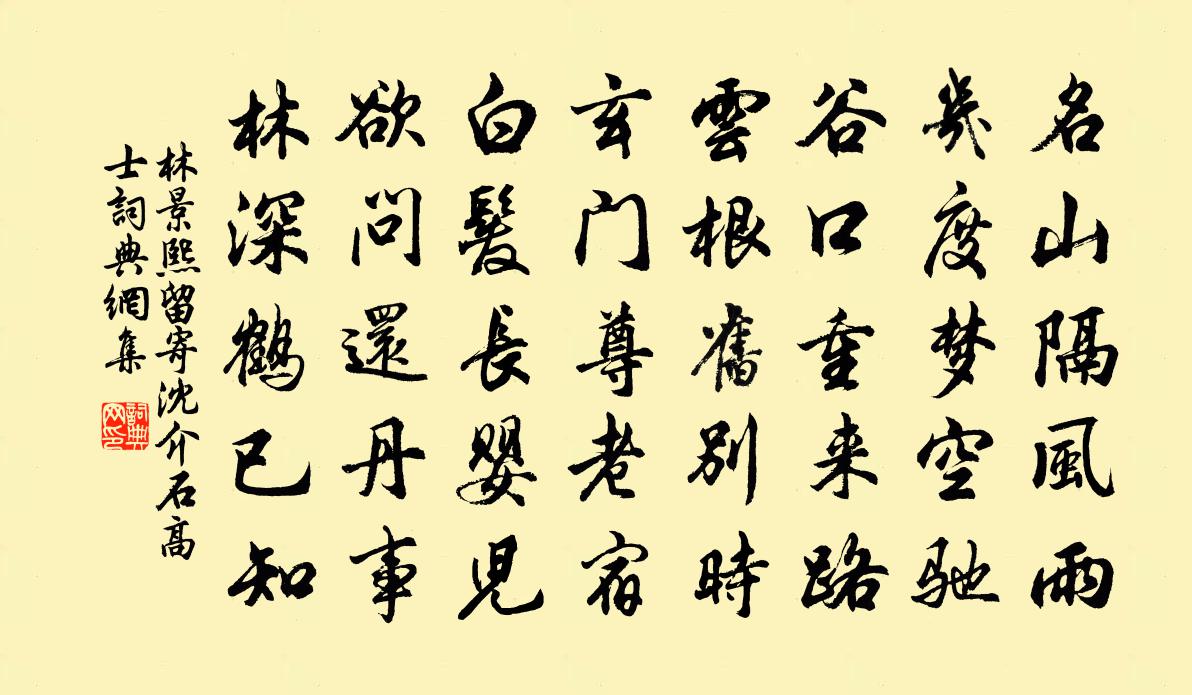 名山隔風雨
幾度梦空馳
谷口重来路
雲根舊別時
玄门尊老宿
白髮長嬰兒
欲问還丹事
林深鶴已知
林景熙留寄沈介石高
士詞典網集
詞典
网印